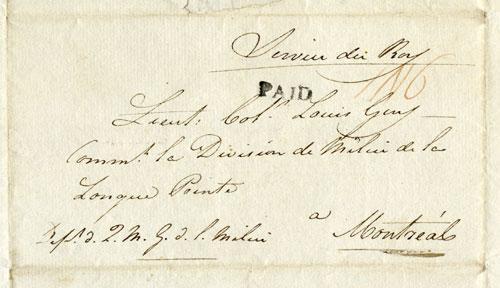 Service du Roy
PAID
Lieut: Col.l Louis Guy
Comm.t la Division de Milice de la
Longue Pointe
a Montréal
Q. M. G. d. l. Milice